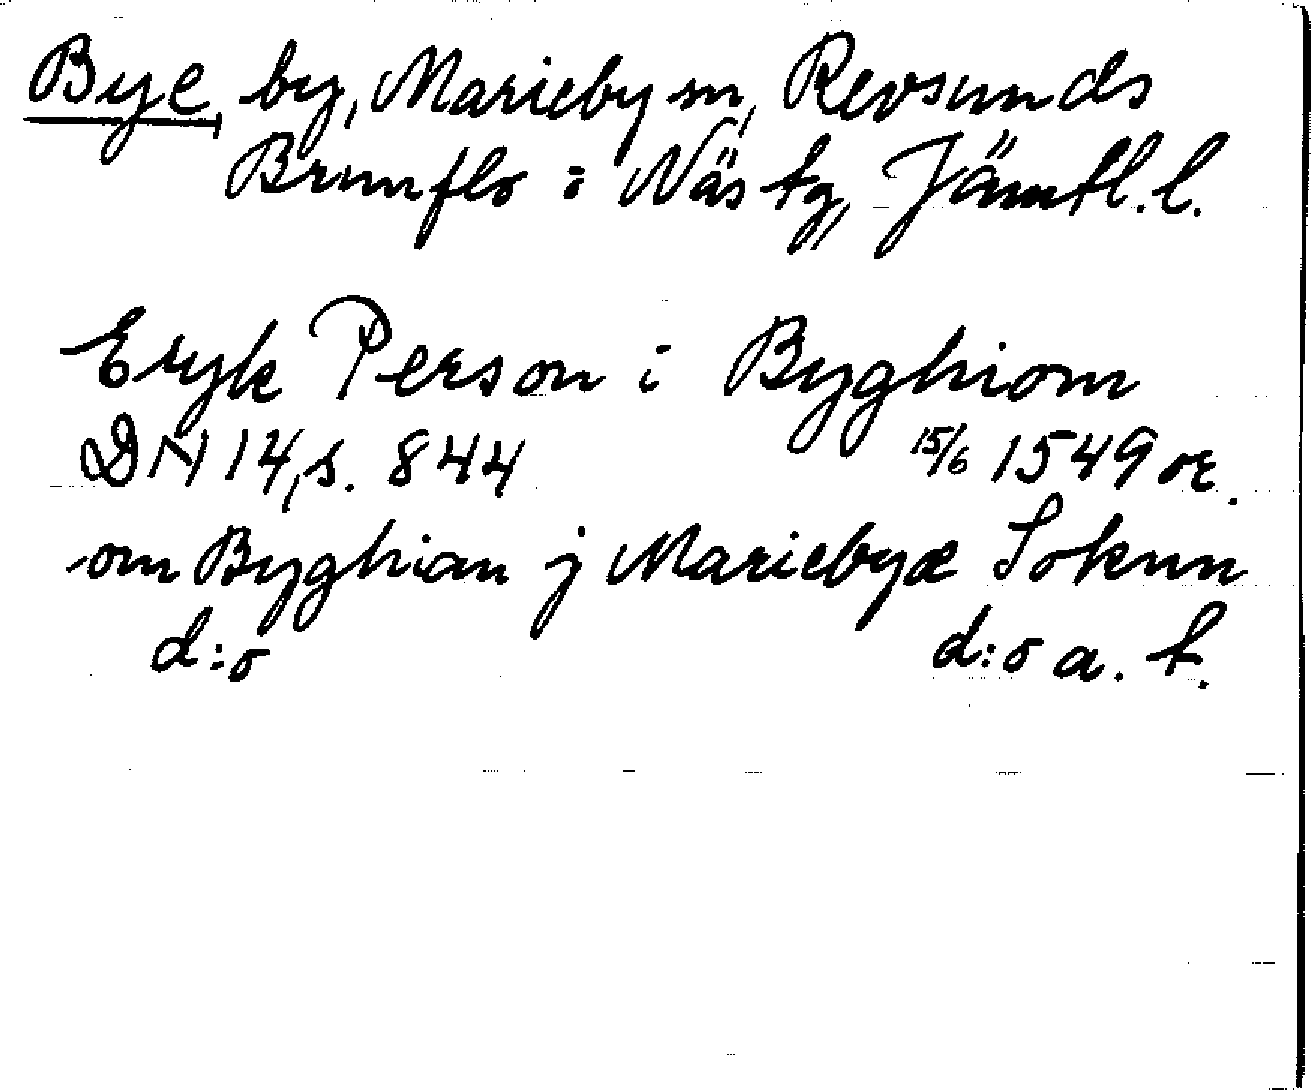 Bye, by, Marieby sn, Revsunds
Brunflo o Näs tg, Jämtl. l.
Eryk Person i Byghiom
DN 14, s. 844 15/6 1549 or.
om Byghian j Mariebyæ Sokun
d:o d:o a. st.